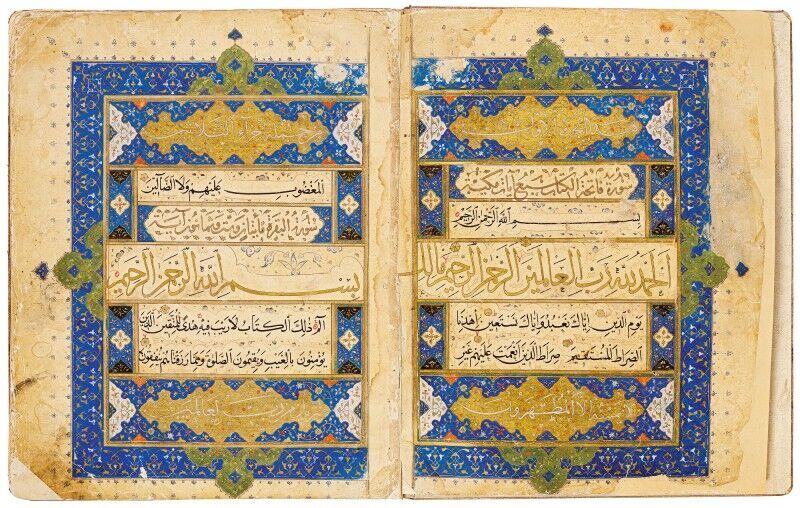 سورة فاتحة الكتاب سبع آيات مكية
بسم الله الرحمن الرحيم
الحمد لله رب العالمين الرحمن الرحيم مالك
يوم الدين اياك نعبد واياك نستعين اهدنا
الصراط المستقيم صراط الذين انعمت عليهم غير
لا يمسه الا المطهرون
المغضوب عليهم ولا الضالين
سورة البقرة مائتان
بسم الله الرحمن الرحيم
الم ذلك الكتاب لا ريب فيه هدى للمتقين الذين
يؤمنون بالغيب ويقيمون الصلوة ومما رزقناهم ينفقون
تنزيل من رب العالمين